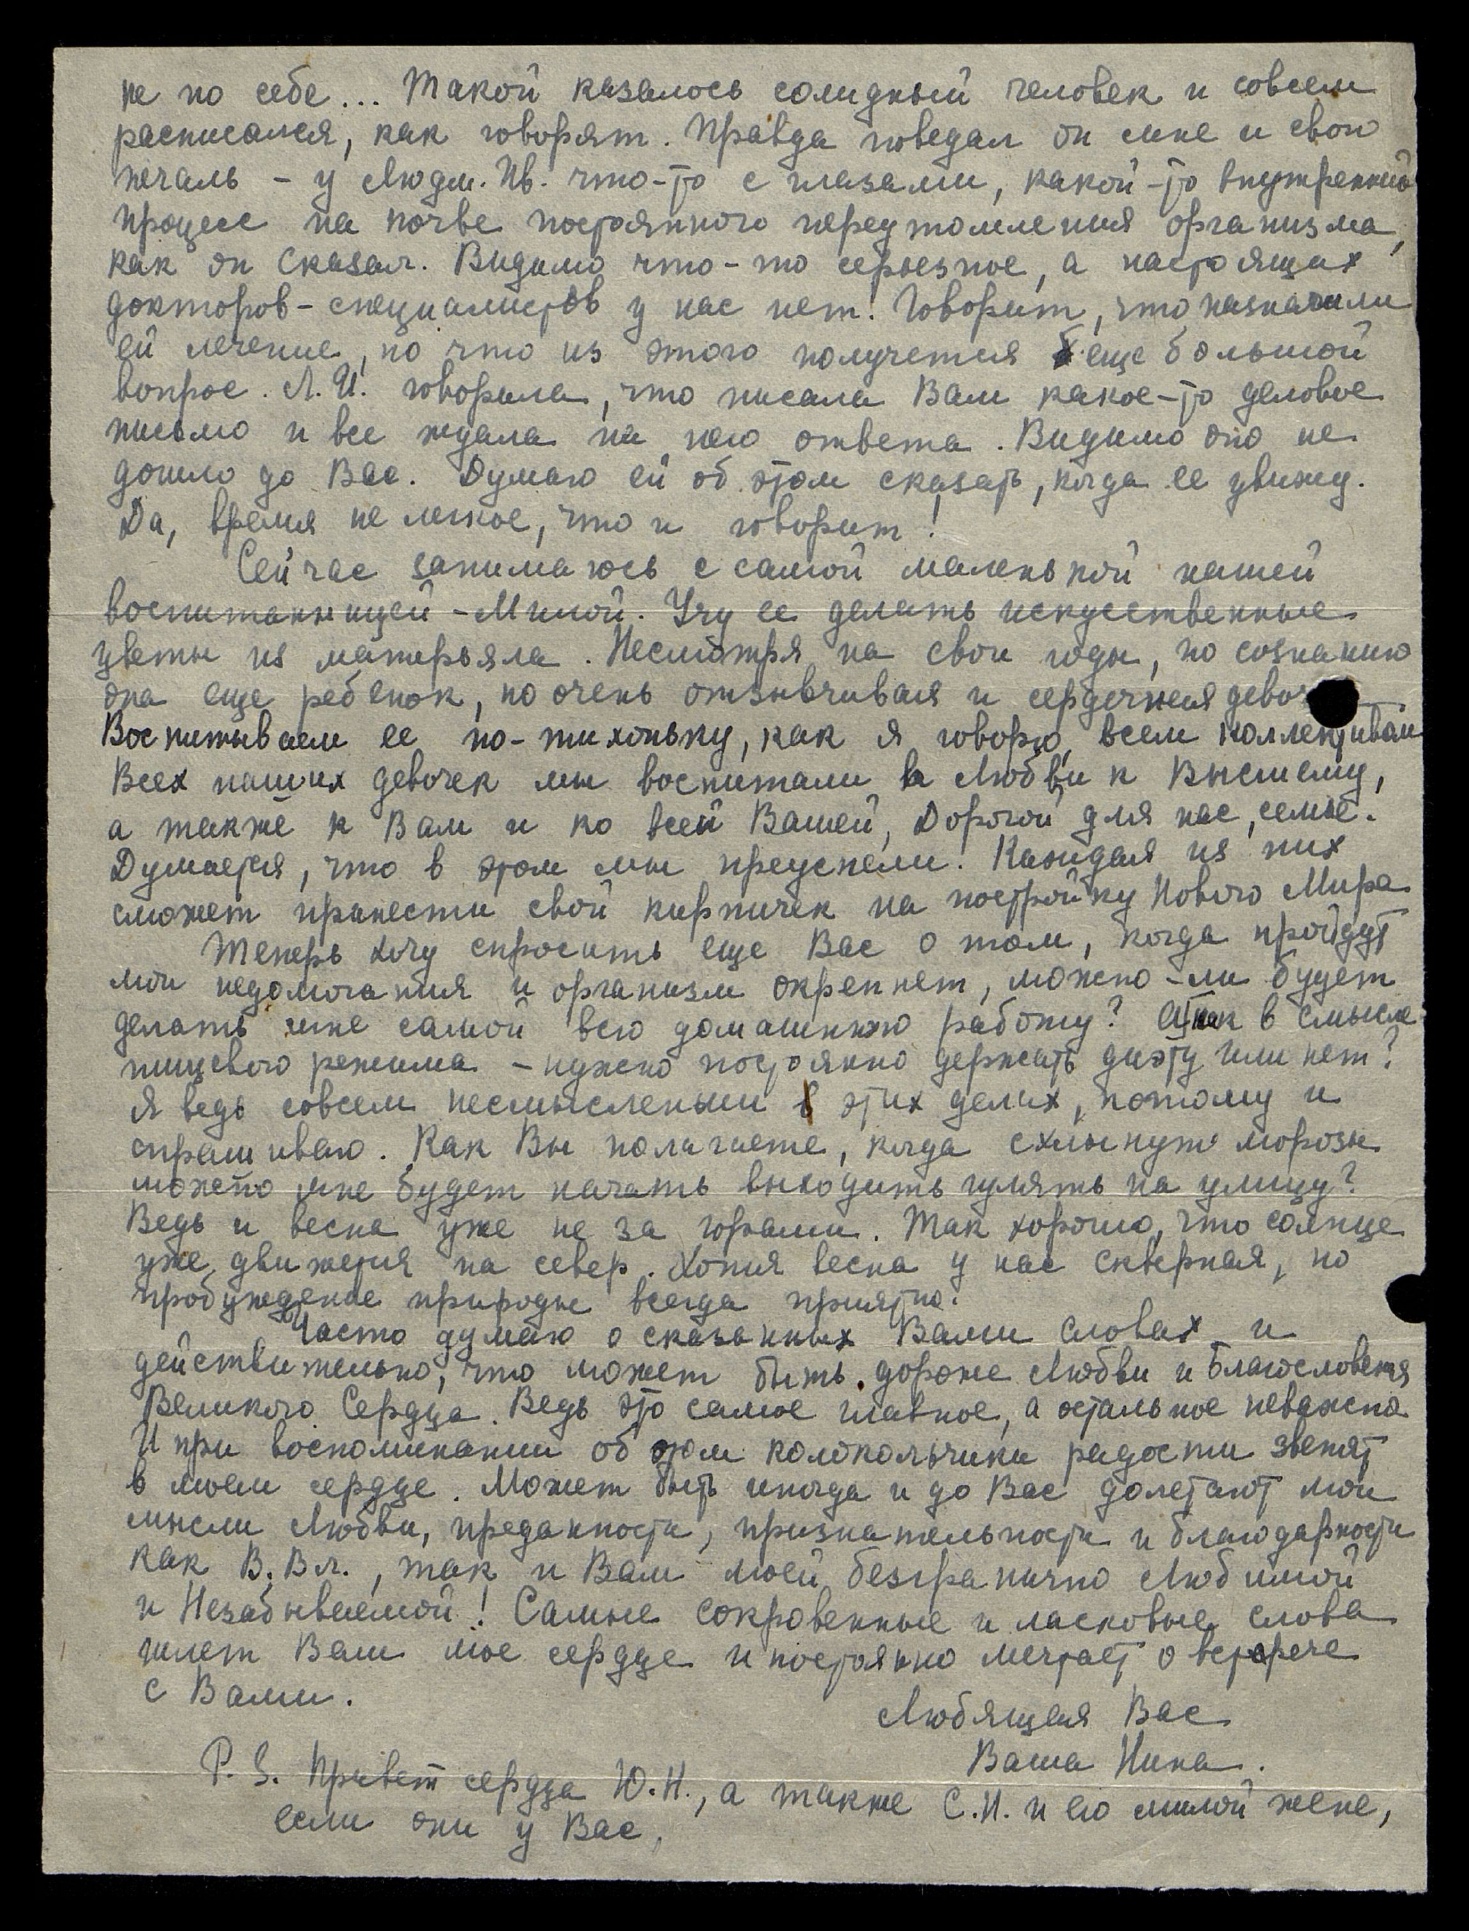 не по себе... Такой казалось солидный человек и совсем
расписался, как говорят. Правда поведал он мне и свою
печаль - у Людм. Ив. что-то с глазами, какой-то внутренний
процесс на почве постоянного переутомления организма,
как он сказал. Видимо что-то серьезное, а настоящих
докторов-специалистов у нас нет! Говорит, что назначили
ей лечение, но что из этого получется еще большой
вопрос. Л.И. говорила, что писала Вам какое-то деловое
письмо и все ждала на него ответа. Видимо оно не
дошло до Вас. Думаю ей об этом сказать, когда ее увижу.
Да, время не легкое, что и говорит!
Сейчас занимаюсь с самой маленькой нашей
воспитанницей - Милой. Учу ее делать искусственные
цветы из матерьяла. Несмотря на свои годы, по сознанию
она еще ребенок, но очень отзывчивая и сердечная девоч
Воспитываем ее по-тихоньку, как я говорю, всем коллективом
Всех наших девочек мы воспитали в Любви к Высшему,
а также к Вам и ко всей Вашей, Дорогой для нас, семье.
Думается, что в этом мы преуспели. Каждая из них
сможет принести свой кирпичек на постройку Нового Мира.
Теперь хочу спросить еще Вас о том, когда пройдут
мои недомогания и организм окрепнет, можно-ли будет
делать мне самой всю домашнюю работу? А как в смысле
пищевого режима - нужно постоянно держать диэту или нет?
Я ведь совсем несмысленыш в этих делах, потому и
спрашиваю. Как Вы полагаете, когда схлынут морозы
можно мне будет начать выходить гулять на улицу?
Ведь и весна уже не за горами. Так хорошо, что солнце
уже движется на север. Хотя весна у нас скверная, но
пробуждение природы всегда приятно.
Часто думаю о сказанных Вами словах и
действительно, что может быть дороже Любви и Благословения
Великого Сердца. Ведь это самое главное, а остальное неважно.
И при воспоминании об этом колокольчики радости звенят
в моем сердце. Может быть иногда и до Вас долетают мои
мысли Любви, преданности, признательности и благодарности
как В. Вл., так и Вам моей безгранично Любимой
и Незабываемой! Самые сокровенные и ласковые слова
шлет Вам мое сердце и постоянно мечтает о встрече
с Вами.
Любящая Вас
Ваша Нина.
P.S. Привет сердца Ю.Н., а также С.Н. и его милой жене,
если они у Вас,